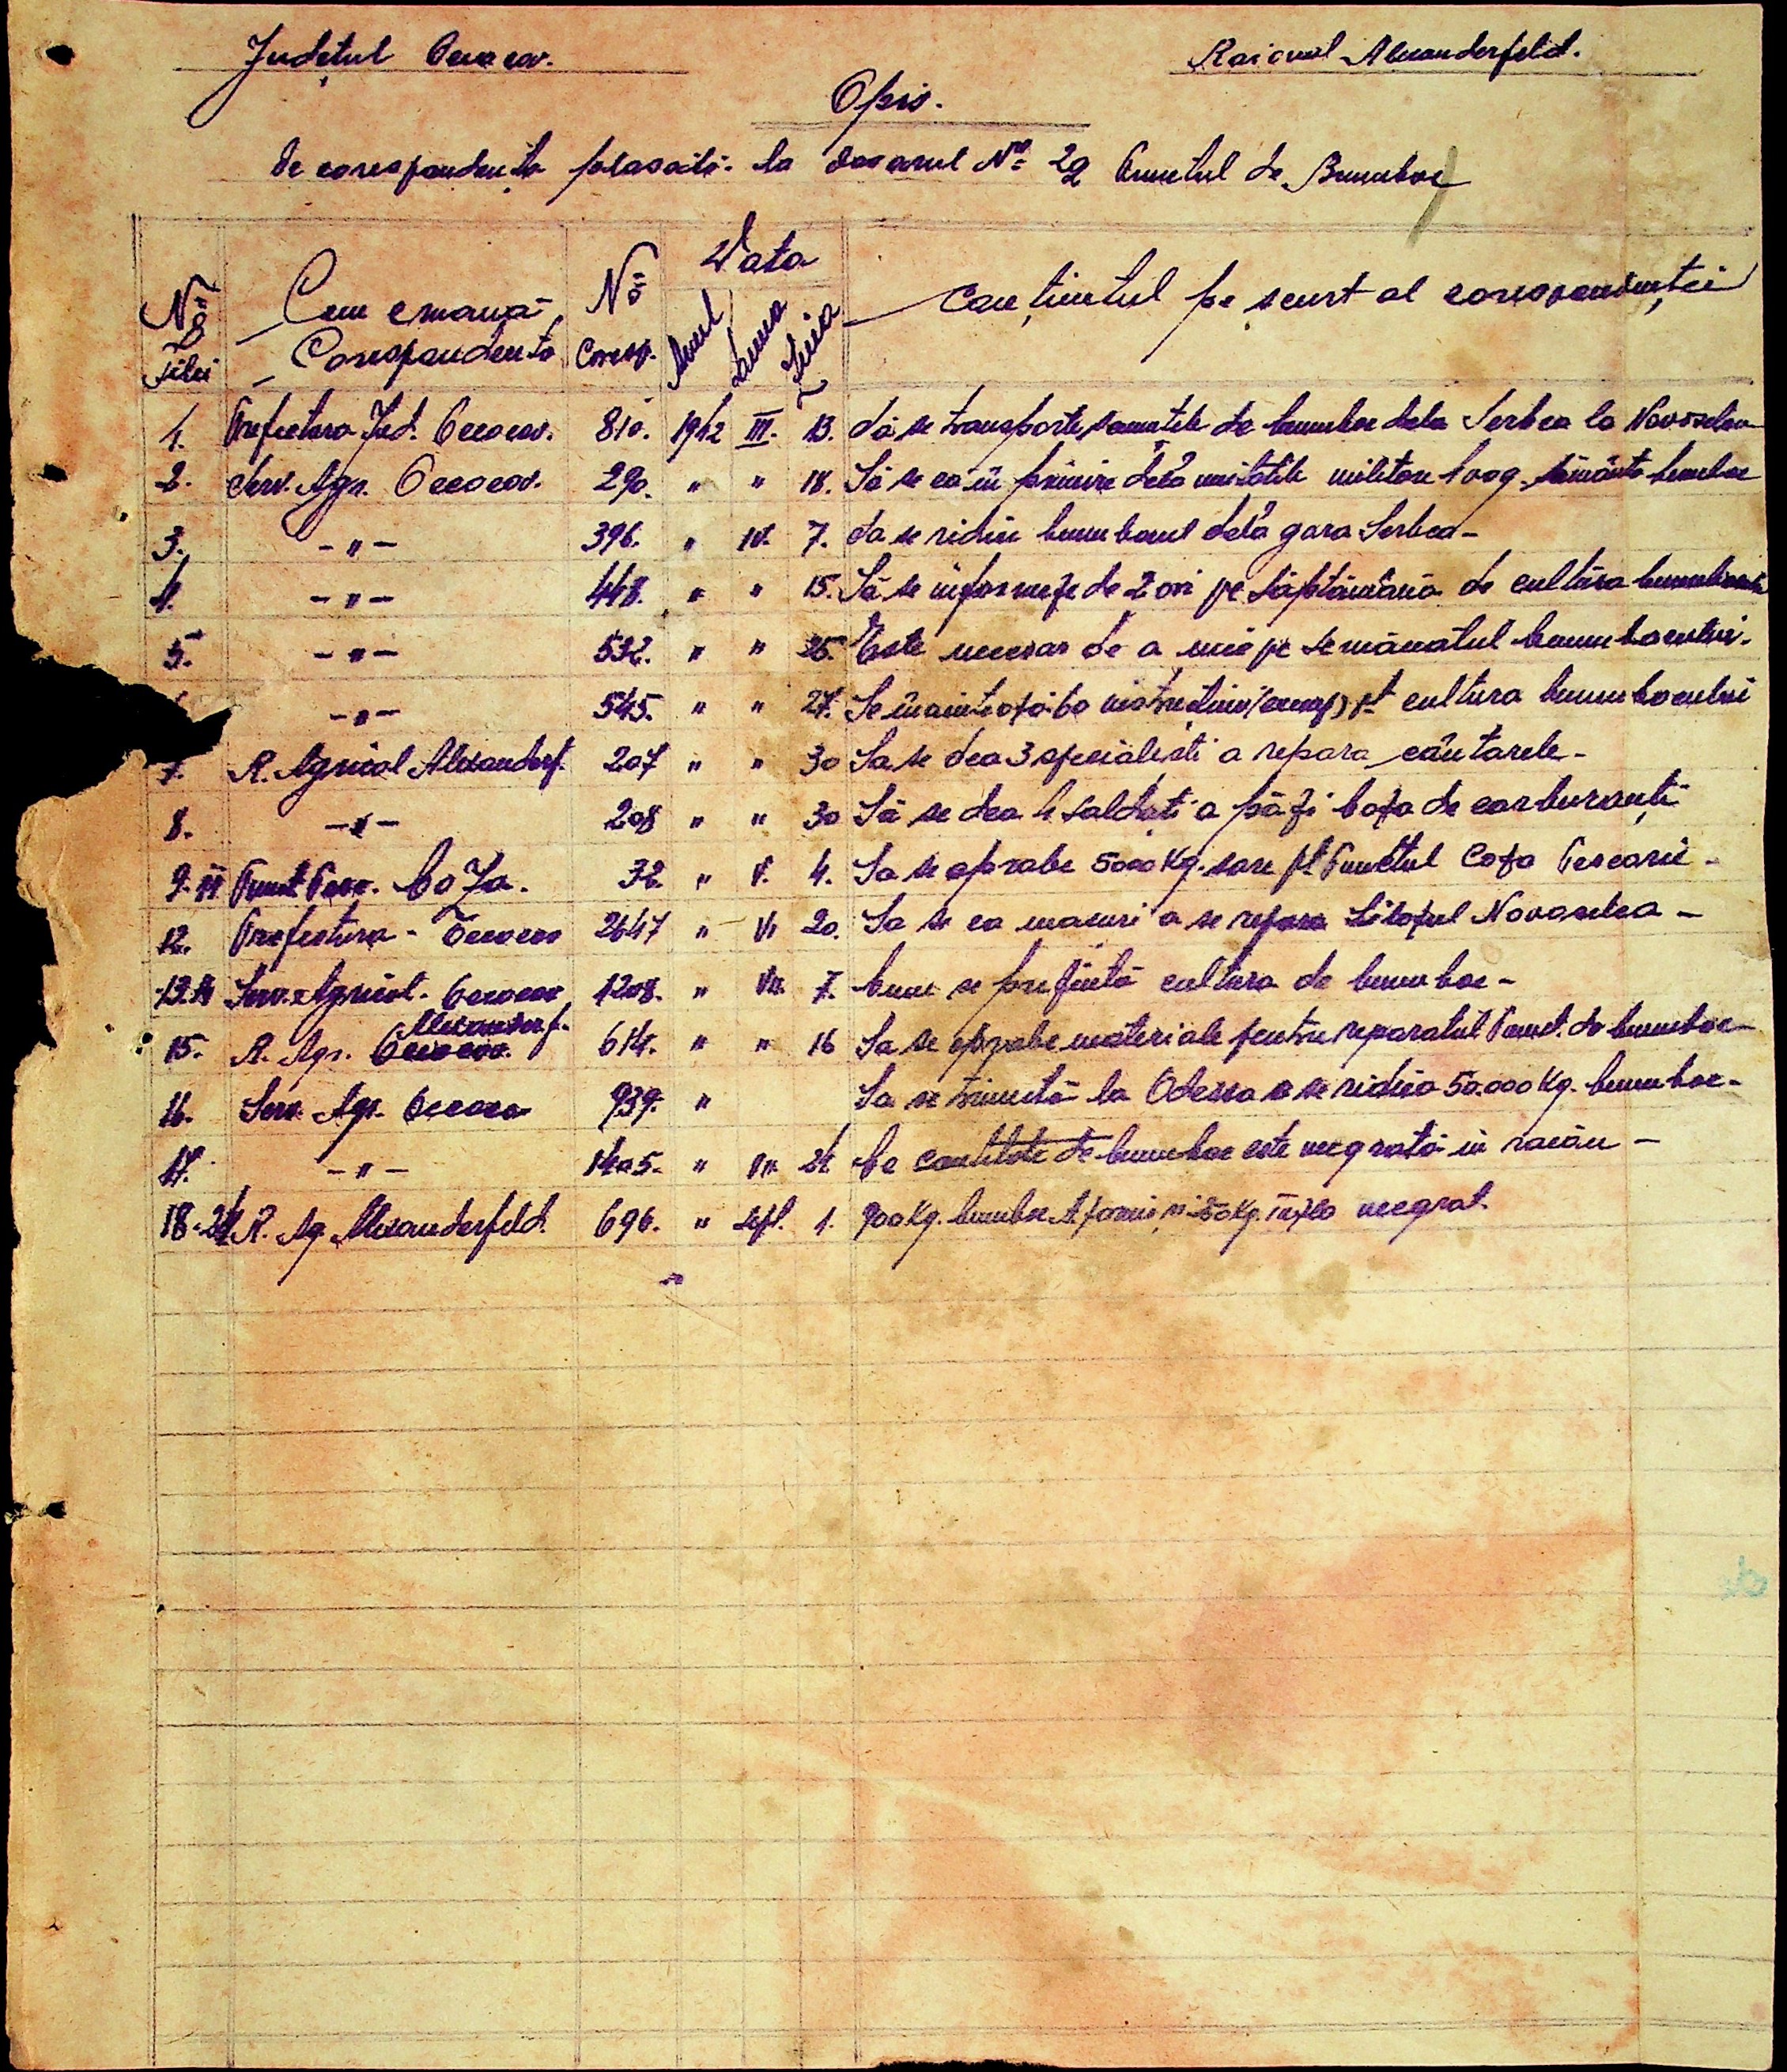 Județul Oceacov.
Raionul Alexanderfeld.
Opis.
de corespondența plasată la dosarul Nº 29 Punctul de Bumbac
Nº Filei
Cine emană Corespondența
Nº Coresp.
Data
Anul Luna Ziua
Conținutul pe scurt al corespondenței
1. Prefectura Jud. Oceacov. 810. 1942 III. 13. Să se transporte semințele de bumbac dela Serbca la Novoselca
2. Serv. Agr. Oceacov. 290. " " 18. Să se ea în primire dela unitățile militare 100 g. sămânța bumbac
3. -"- 396. " IV. 7. Sa se ridice bumbacul dela gara Serbca -
4. -"- 448. " " 15. Să se informeze de 2 ori pe săptămână de cultura bumbacului
5. -"- 532. " " 25. Este necesar de a păți semănatul bumbacului.
-"- 545. " " 27. Se înaintează 60 instrucțiuni (exemp) pt cultura bumbacului
7. R. Agricol Alexanderf. 207 " " 30 Sa se dea 3 specialiști a repara cântarele -
8. -"- 208 " " 30 Să se dea 4 soldați a păzi baza de carburanți
9-11 Punct Pesc. Coza. 32. " V. 4. Sa se aprobe 5000 Kg. sare pt Punctul Coza Pescarie -
12. Prefectura - Oceacov 2647 " VI 20. Sa se ea masuri a se repara Silozul Novoselca -
13.14 Serv. Agricol. Oceacov 1208. " VII. 7. Cum se prezintă cultura de bumbac -
Alexanderf.
15. R. Agr. Oceacov. 614. " " 16 Sa se aprobe materiale pentru reparatul Punct. de bumbac -
16. Serv. Agr. Oceacov 939. " Sa se trimită la Odessa a se ridica 50.000 Kg. bumbac -
17. -"- 1405. " VII. 24. Ce cantitate de bumbac este neegrată în raion -
18-24 R. Ag. Alexanderfeld. 696. " Sept. 1. 900 Kg. bumbac neegrat.